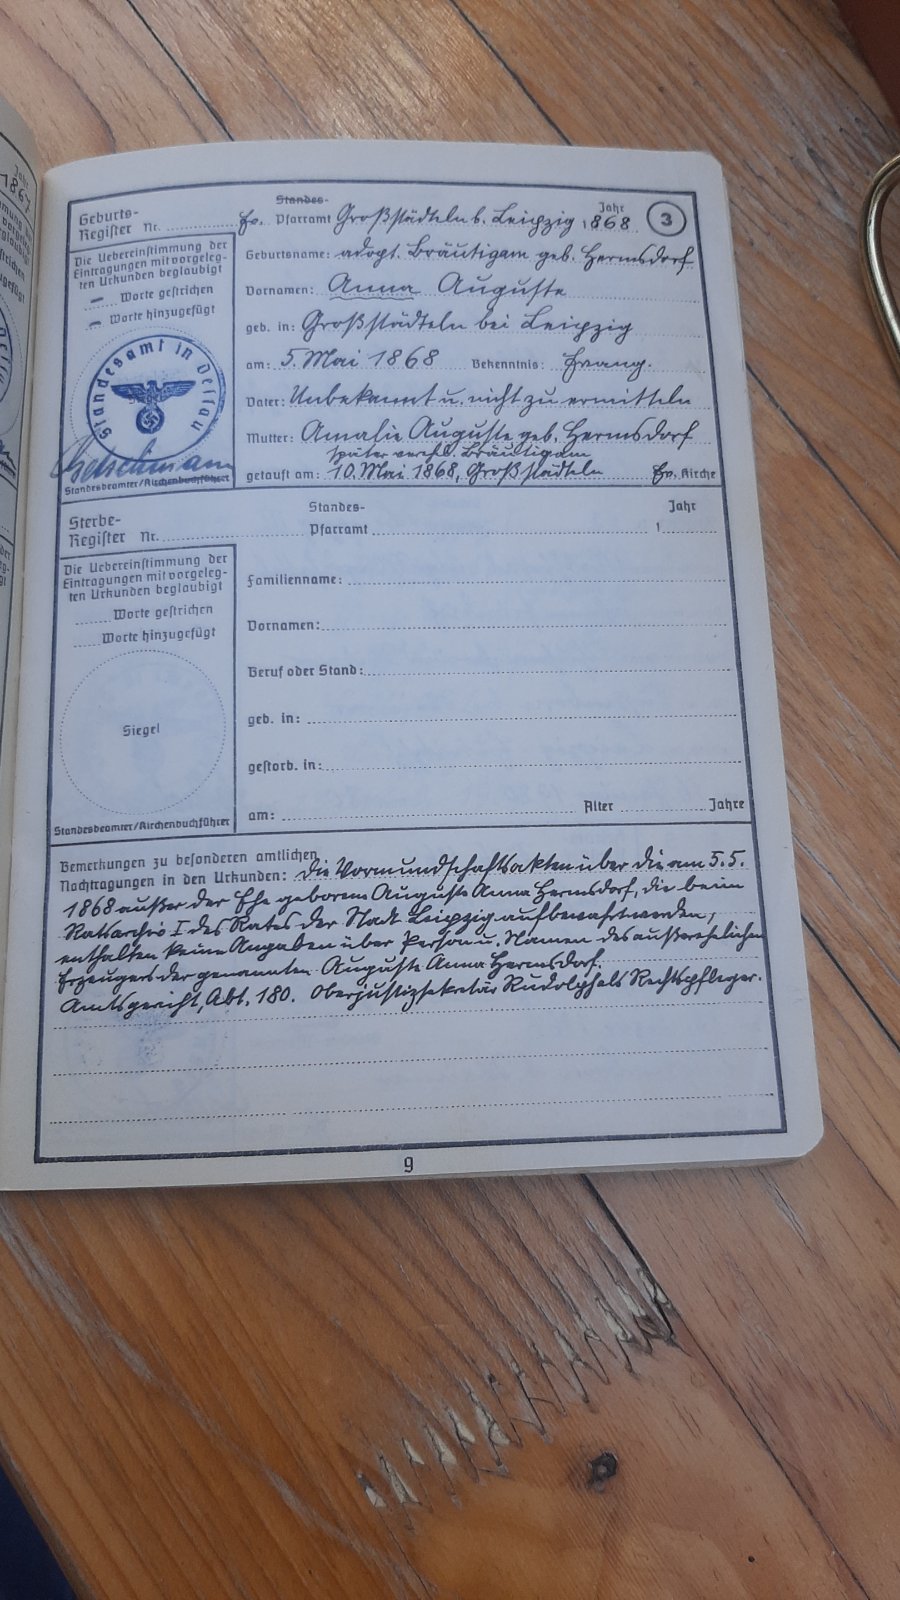 Jahr
1867
Standes-
Geburts-
Register Nr. Ev. Pfarramt Großstädteln b. Leipzig Jahr 1868 3
Die Uebereinstimmung der
Eintragungen mit vorgeleg-
ten Urkunden beglaubigt
— Worte gestrichen
— Worte hinzugefügt
Standesamt in Dessau
Standesbeamter/Kirchenbuchführer
Geburtsname: adopt. Bräutigam geb. Hermsdorf
Vornamen: Anna Auguste
geb. in: Großstädteln bei Leipzig
am: 5. Mai 1868 Bekenntnis: Evang.
Vater: Unbekannt u. nicht zu ermitteln
Mutter: Amalie Auguste geb. Hermsdorf
später verehl. Bräutigam
getauft am: 10. Mai 1868, Großstädteln Ev. Kirche
Sterbe-
Register Nr.
Standes-
Pfarramt
Jahr
1
Die Uebereinstimmung der
Eintragungen mit vorgeleg-
ten Urkunden beglaubigt
Worte gestrichen
Worte hinzugefügt
Siegel
Standesbeamter/Kirchenbuchführer
Familienname:
Vornamen:
Beruf oder Stand:
geb. in:
gestorb. in:
am: Alter Jahre
Bemerkungen zu besonderen amtlichen
Nachtragungen in den Urkunden: Die Vormundschaftsakten über die am 5.5.
1868 außer der Ehe geborene Auguste Anna Hermsdorf, die beim
Ratsarchiv I des Rates der Stadt Leipzig aufbewahrt werden,
enthalten keine Angaben über Person u. Namen des außerehelichen
Erzeugers der genannten Auguste Anna Hermsdorf.
Amtsgericht, Abt. 180. Oberjustizsekretär Rudolph als Rechtspfleger.
9